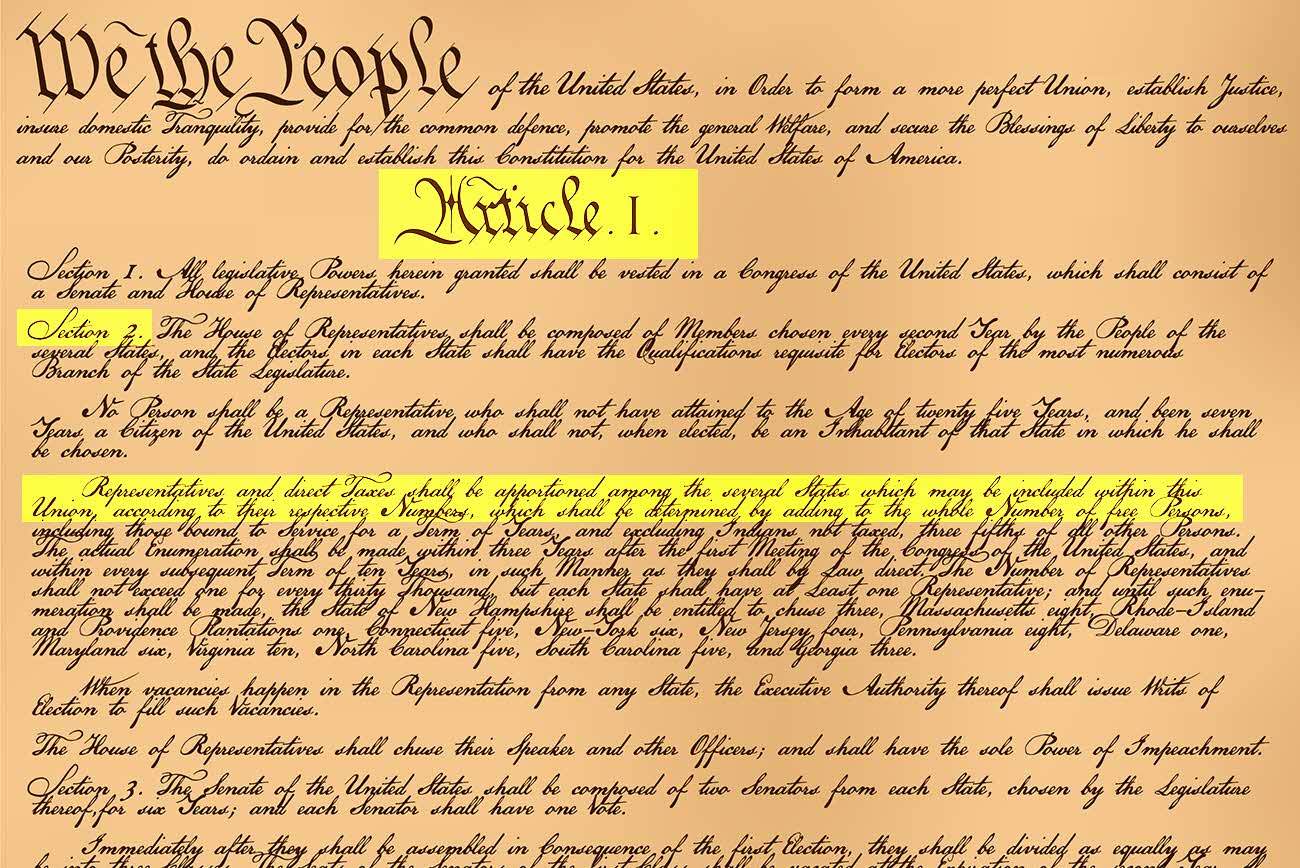 We the People of the United States, in Order to form a more perfect Union, establish Justice,
insure domestic Tranquility, provide for the common defence, promote the general Welfare, and secure the Blessings of Liberty to ourselves
and our Posterity, do ordain and establish this Constitution for the United States of America.
Article. I.
Section 1. All legislative Powers herein granted shall be vested in a Congress of the United States, which shall consist of
a Senate and House of Representatives.
Section 2. The House of Representatives shall be composed of Members chosen every second Year by the People of the
several States, and the Electors in each State shall have the Qualifications requisite for Electors of the most numerous
Branch of the State Legislature.
No Person shall be a Representative who shall not have attained to the Age of twenty five Years, and been seven
Years a Citizen of the United States, and who shall not, when elected, be an Inhabitant of that State in which he shall
be chosen.
Representatives and direct Taxes shall be apportioned among the several States which may be included within this
Union, according to their respective Numbers, which shall be determined by adding to the whole Number of free Persons,
including those bound to Service for a Term of Years, and excluding Indians not taxed, three fifths of all other Persons.
The actual Enumeration shall be made within three Years after the first Meeting of the Congress of the United States, and
within every subsequent Term of ten Years, in such Manner as they shall by Law direct. The Number of Representatives
shall not exceed one for every thirty Thousand, but each State shall have at Least one Representative; and until such enu-
meration shall be made, the State of New Hampshire shall be entitled to chuse three, Massachusetts eight, Rhode-Island
and Providence Plantations one, Connecticut five, New-York six, New Jersey four, Pennsylvania eight, Delaware one,
Maryland six, Virginia ten, North Carolina five, South Carolina five, and Georgia three.
When vacancies happen in the Representation from any State, the Executive Authority thereof shall issue Writs of
Election to fill such Vacancies.
The House of Representatives shall chuse their Speaker and other Officers; and shall have the sole Power of Impeachment.
Section 3. The Senate of the United States shall be composed of two Senators from each State, chosen by the Legislature
thereof, for six Years; and each Senator shall have one Vote.
Immediately after they shall be assembled in Consequence of the first Election, they shall be divided as equally as may